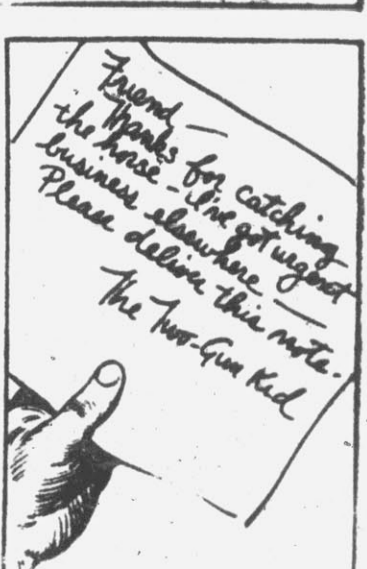 Friend —
Thanks for catching
the horse - I've got urgent
business elsewhere —
Please deliver this note.
The Two-Gun Kid